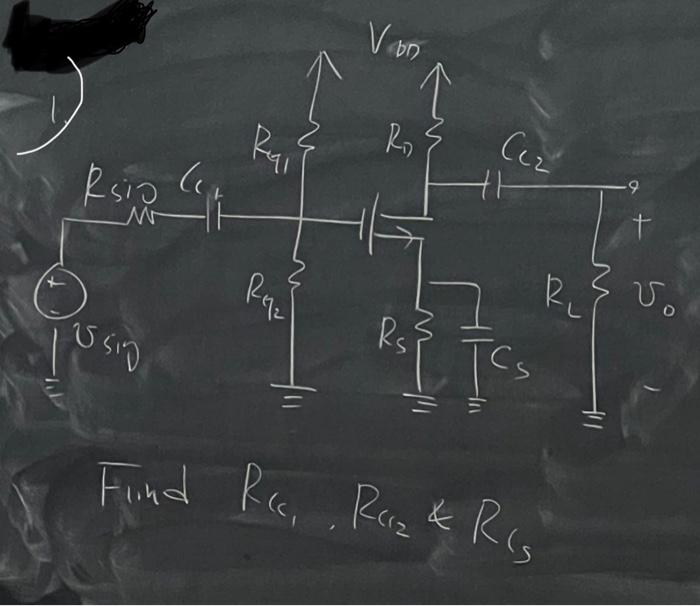 V_DD
1.
R_g1 R_D C_C2
R_sig C_C1
+
R_g2 R_L v_o
+
-
R_S C_S
v_sig
-
Find R_CC1, R_CC2 & R_CS